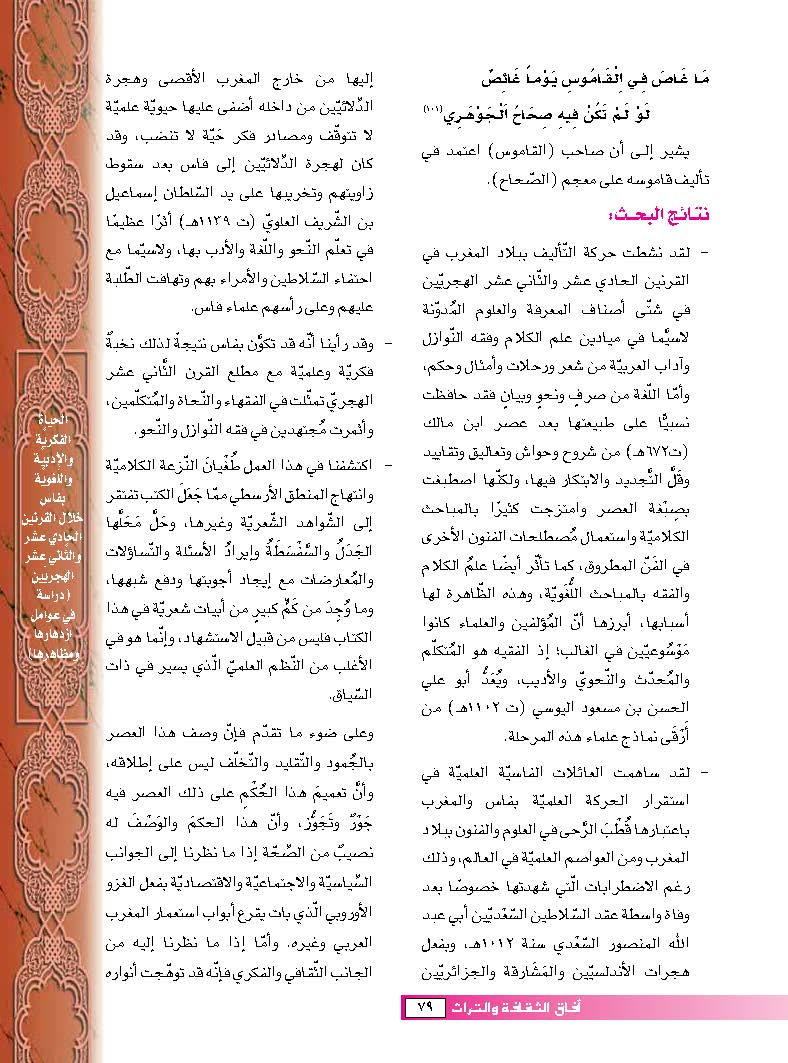 مَا غَاصَ فِي اِلْقَامُوسِ يَوْماً غَائِصٌ
لَوْ لَمْ تَكُنْ فِيهِ صِحَاحُ اَلْجَوْهَرِي(١٠١)
يشير إلى أن صاحب (القاموس) اعتمد في
تأليف قاموسه على معجم (الصّحاح).
نتائج البحث:
– لقد نشطت حركة التّأليف ببلاد المغرب في
القرنين الحادي عشر والثّاني عشر الهجريّين
في شتّى أصناف المعرفة والعلوم المُدوّنة
لاسيَّما في ميادين علم الكلام وفقه النّوازل
وآداب العربيّة من شعر ورحلات وأمثال وحكم،
وأمّا اللّغة من صرفٍ ونحوٍ وبيانٍ فقد حافظت
نسبيًّا على طبيعتها بعد عصر ابن مالك
(ت٦٧٢هـ) من شروح وحواش وتعاليق وتقاييد
وقَلَّ التَّجديد والابتكار فيها، ولكنّها اصطبغت
بصِبْغة العصر وامتزجت كثيرًا بالمباحث
الكلاميّة واستعمال مُصطلحات الفنون الأخرى
في الفَنّ المطروق، كما تأثّر أيضًا علمُ الكلام
والفقه بالمباحث اللُّغَويّة، وهذه الظّاهرة لها
أسبابها، أبرزها أنّ المُؤلفين والعلماء كانوا
مَوْسُوعيّين في الغالب؛ إذ الفقيه هو المُتكلّم
والمُحدّث والنّحويّ والأديب، ويُعَدُّ أبو علي
الحسن بن مسعود اليوسي (ت ١١٠٢هـ) من
أَرْقَى نماذج علماء هذه المرحلة.
– لقد ساهمت العائلات الفاسيّة العلميّة في
استقرار الحركة العلميّة بفاس والمغرب
باعتبارها قُطْبَ الرَّحى في العلوم والفنون ببلاد
المغرب ومن العواصم العلميّة في العالم، وذلك
رغم الاضطرابات الّتي شهدتها خصوصًا بعد
وفاة واسطة عقد السّلاطين السّعْديّين أبي عبد
الله المنصور السّعْدي سنة ١٠١٢هـ، وبفعل
هجرات الأندلسيّين والمَشَارقة والجزائريّين
إليها من خارج المغرب الأقصى وهجرة
الدِّلائيّين من داخله أضفى عليها حيويّة علميّة
لا تتوقّف ومصادر فكر حَيّة لا تنضب، وقد
كان لهجرة الدِّلائيّين إلى فاس بعد سقوط
زاويتهم وتخريبها على يد السّلطان إسماعيل
بن الشّريف العلويّ (ت ١١٣٩هـ) أثرًا عظيمًا
في تعلّم النّحو واللّغة والأدب بها، ولاسيّما مع
احتفاء السّلاطين والأمراء بهم وتهافت الطّلبة
عليهم وعلى رأسهم علماء فاس.
– وقد رأينا أنّه قد تكوَّن بفاس نتيجةً لذلك نخبةٌ
فكريّة وعلميّة مع مطلع القرن الثَّاني عشر
الهجريّ تمثّلت في الفقهاء والنّحاة والمُتكلّمين،
وأثمرت مُجتهدين في فقه النّوازل والنّحو.
– اكتشفنا في هذا العمل طُغْيانَ النّزعة الكلاميّة
وانتهاج المنطق الأرسطي ممّا جَعَلَ الكتب تفتقر
إلى الشّواهد الشّعريّة وغيرها، وحَلَّ مَحَلَّها
الجَدَلُ والسَّفْسَطَةُ وإيرادُ الأسئلة والتّساؤلات
والمُعارضات مع إيجاد أجوبتها ودفع شبهها،
وما وُجِدَ من كَمٍّ كبيرٍ من أبيات شعريّة في هذا
الكتاب فليس من قبيل الاستشهاد، وإنّما هو في
الأغلب من النّظم العلميّ الّذي يسير في ذات
السّياق.
وعلى ضوء ما تقدّم فإنّ وصف هذا العصر
بالجُمود والتّقليد والتّخلّف ليس على إطلاقه،
وأنَّ تعميمَ هذا الحُكْمِ على ذلك العصر فيه
جَوْرٌ وتَجَوُّز، وأنّ هذا الحكمَ والوَصْفَ له
نصيبٌ من الصّحّة إذا ما نظرنا إلى الجوانب
السّياسيّة والاجتماعيّة والاقتصاديّة بفعل الغزو
الأوروبي الّذي بات يقرع أبواب استعمار المغرب
العربي وغيره. وأمّا إذا ما نظرنا إليه من
الجانب الثّقافي والفكري فإنّه قد توهّجت أنواره
الحياة
الفكرية
والأدبية
واللغوية
بفاس
خلال القرنين
الحادي عشر
والثاني عشر
الهجريين
(دراسة
في عوامل
ازدهارها
ومظاهرها)
آفاق الثقافة والتراث ٧٩